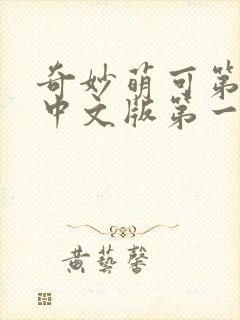 奇妙萌可第
中文版第一
黄藝馨